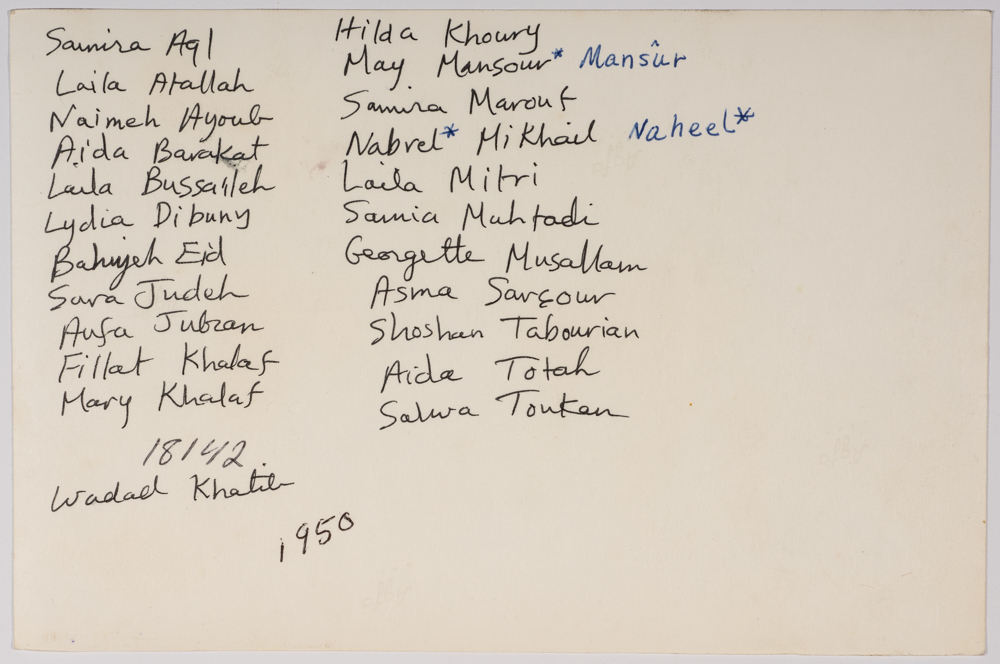 Samira Aql
Laila Atallah
Naimeh Ayoub
Aida Barakat
Laila Bussaileh
Lydia Dibuny
Bahijeh Eid
Sara Judeh
Aufa Jubran
Fillat Khalaf
Mary Khalaf
18142
Wadad Khatib
1950
Hilda Khoury
May Mansour* Mansûr
Samira Marouf
Nabrel* Mikhail Naheel*
Laila Mitri
Samia Muhtadi
Georgette Musallam
Asma Sarçour
Shoshan Tabourian
Aida Totah
Salwa Toukan